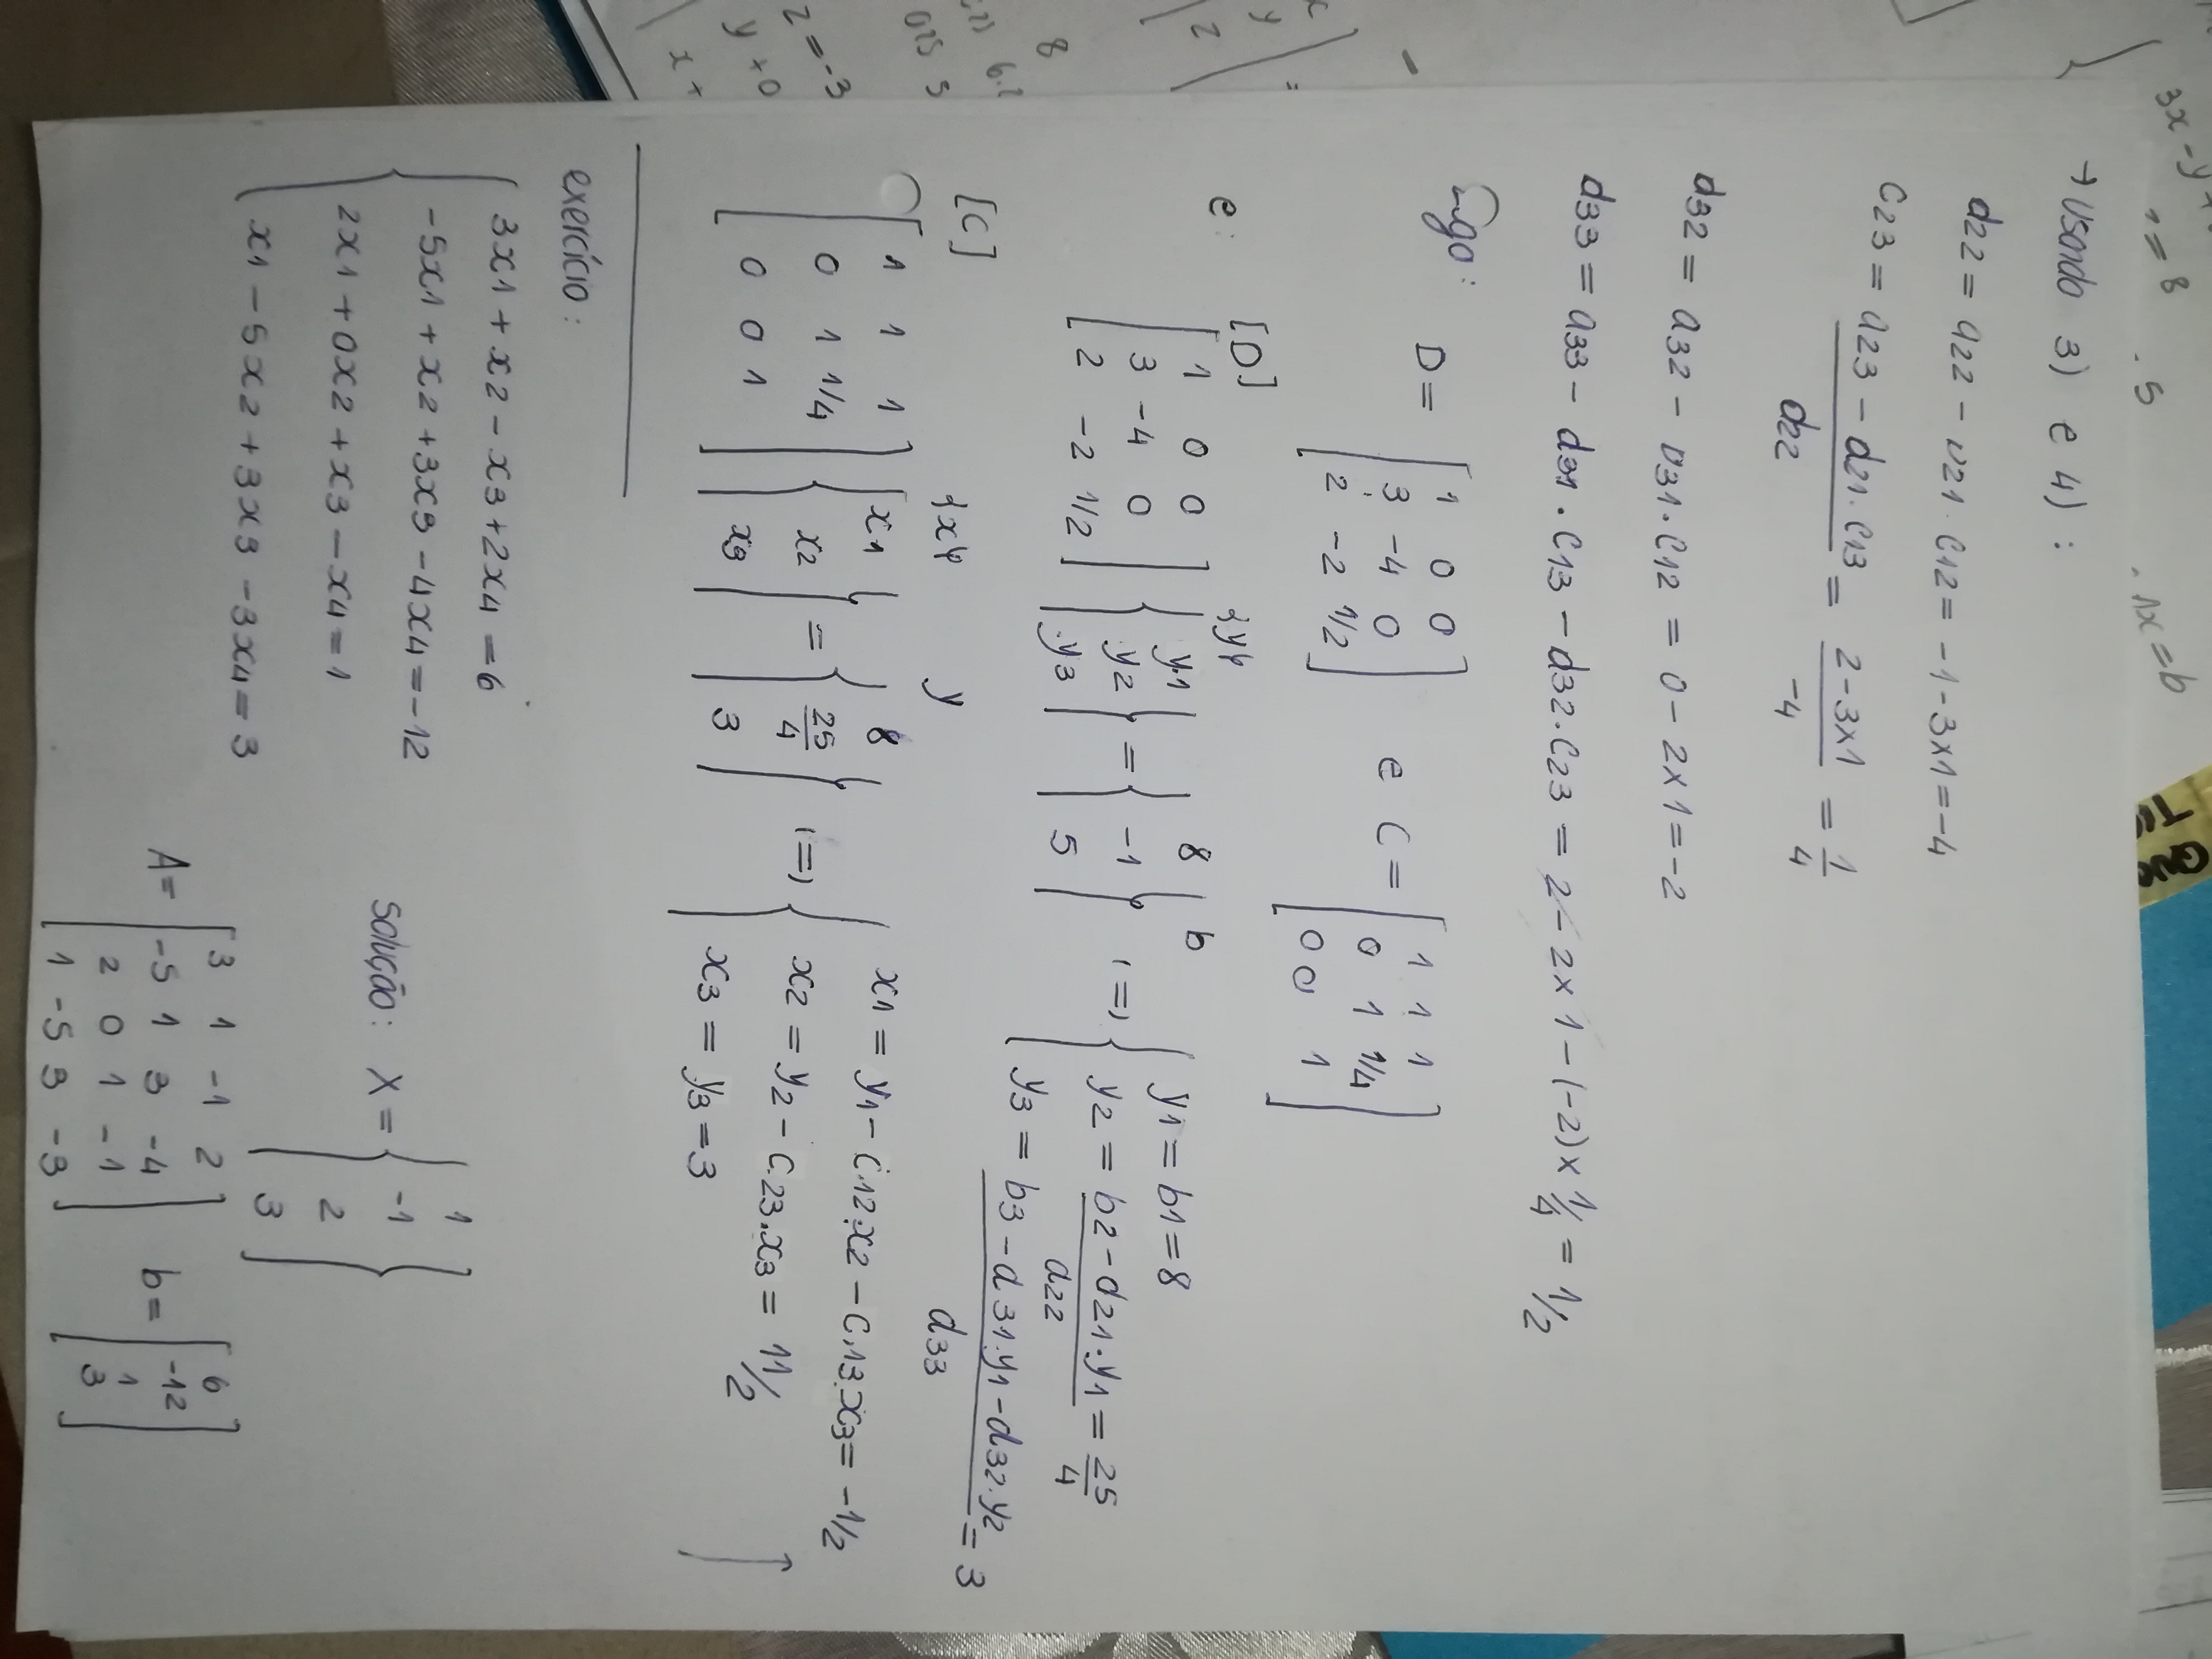 3x-y+
= 8
. 5
. Ax = b
→ Usando 3) e 4) :
d22 = a22 - d21 . c12 = -1 - 3x1 = -4
c23 = a23 - d21 . c13 / d22 = 2 - 3x1 / -4 = 1/4
d32 = a32 - d31 . c12 = 0 - 2x1 = -2
d33 = a33 - d31 . c13 - d32 . c23 = 2 - 2x1 - (-2) x 1/4 = 1/2
Logo:
D = [ 1 0 0
3 -4 0
2 -2 1/2 ]
e C = [ 1 1 1
0 1 1/4
0 0 1 ]
e: [D] {y} b
[ 1 0 0
3 -4 0
2 -2 1/2 ]
{ y1
y2
y3 } = { 8
-1
5 }
(=) { y1 = b1 = 8
y2 = b2 - d21.y1 / d22 = 25/4
y3 = b3 - d31.y1 - d32.y2 / d33 = 3
[C] {x} y
[ 1 1 1
0 1 1/4
0 0 1 ]
{ x1
x2
x3 } = { 8
25/4
3 }
(=) { x1 = y1 - c12.x2 - c13.x3 = -1/2
x2 = y2 - c23.x3 = 11/2
x3 = y3 = 3
exercício :
3x1 + x2 - x3 + 2x4 = 6
-5x1 + x2 + 3x3 - 4x4 = -12
2x1 + 0x2 + x3 - x4 = 1
x1 - 5x2 + 3x3 - 3x4 = 3
solução: X = { 1
-1
2
3 }
A = [ 3 1 -1 2
-5 1 3 -4
2 0 1 -1
1 -5 3 -3 ]
b = [ 6
-12
1
3 ]
y
z
8
z = -3
y + 0
x +